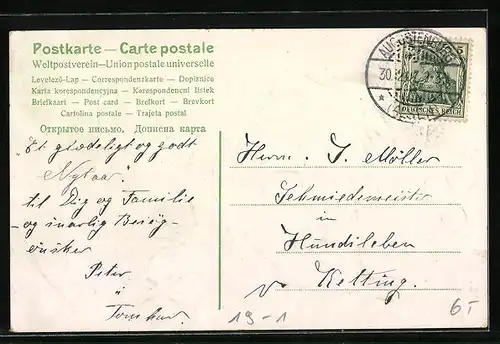 Postkarte — Carte postale
Weltpostverein — Union postale universelle
Levelező-Lap — Correspondenzkarte — Dopisnice
Karta korespondencyjna — Korespondenční lístek
Briefkaart — Post card — Brefkort — Brevkort
Cartolina postale — Tarjeta postal
Открытое письмо. Дописна карта
"Et glædeligt og godt
Nytaar"
til Dig og Familie
- og snarlig Besøg -
ønsker
Peter
Herrn J. Möller
Schmiedemeister
in
Hundsleben
Ketting.
AUGUSTENBURG
30.12.
DEUTSCHES REICH
5
19-1
6.-